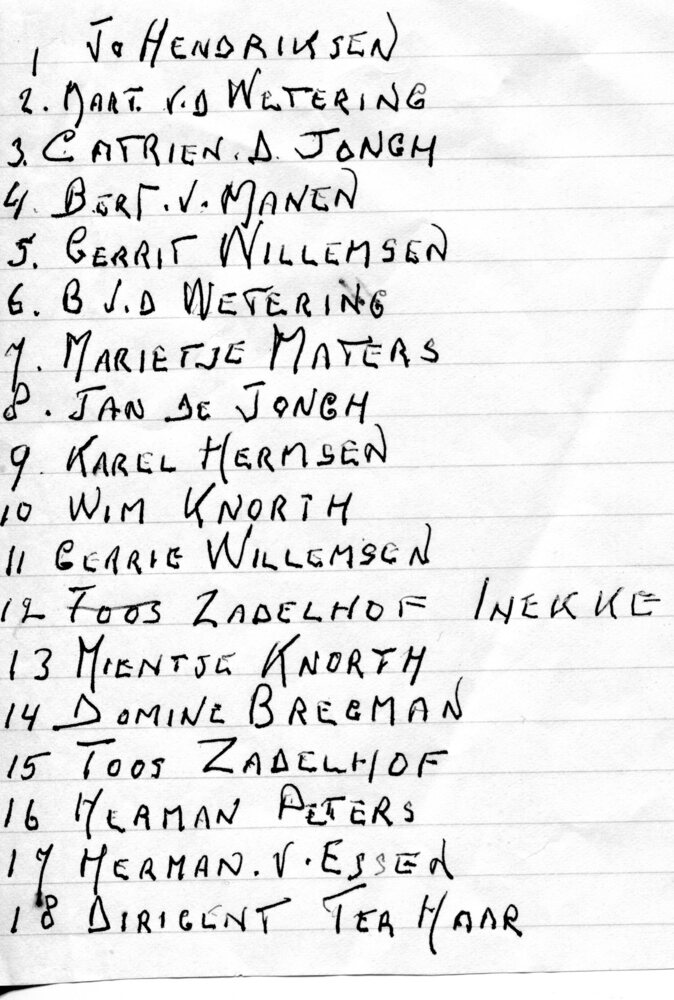 1 Jo HENDRIKSEN
2. MART. V.D WETERING
3. CATRIEN. D. JONGH
4. BERT. V. MANEN
5. GERRIT WILLEMSEN
6. B V.D WETERING
7. MARIETJE MATERS
8. JAN DE JONGH
9. KAREL HERMSEN
10 WIM KNORTH
11 GERRIE WILLEMSEN
12 TOOS ZADELHOF INEKKE
13 MIENTJE KNORTH
14 DOMINE BREGMAN
15 TOOS ZADELHOF
16 HERMAN PETERS
17 HERMAN. V. ESSEN
18 DIRIGENT TER HAAR